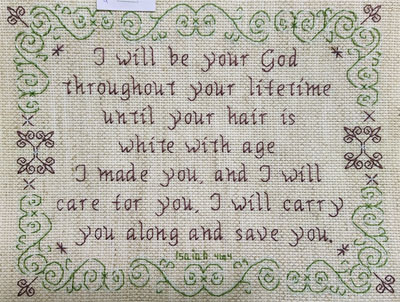 I will be your God
throughout your lifetime
until your hair is
white with age
I made you, and I will
care for you, I will carry
you along and save you.
Isaiah 46:4